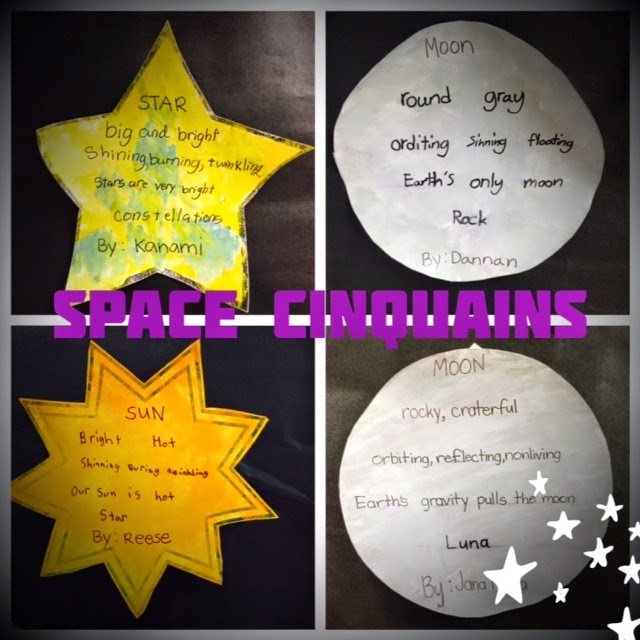 STAR
big and bright
Shining, burning, twinkling
Stars are very bright
constellations
By: Kanami
Moon
round gray
orditing sinning floating
Earth's only moon
Rock
By: Dannan
SPACE CINQUAINS
SUN
Bright Hot
Shinning twinkling
Our sun is hot
Star
By: Reese
MOON
rocky, craterful
orbiting, reflecting, nonliving
Earth's gravity pulls the moon
Luna
By: Jana